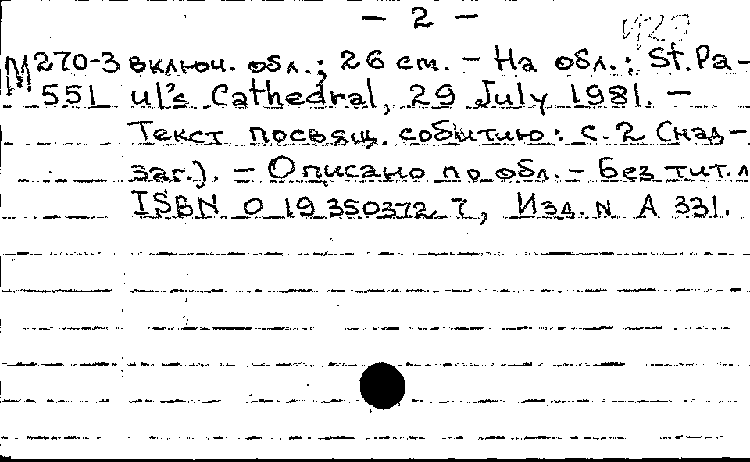 - 2 -
М 270-3 включ. обл.; 26 см. - На обл.: St. Pa-
551 ul's Cathedral, 29 July 1981. -
Текст посвящ. событию: с. 2 (над-
заг.). - Описано по обл. - Без тит. л
ISBN 0 19 350372 7, Изд. N А 331.